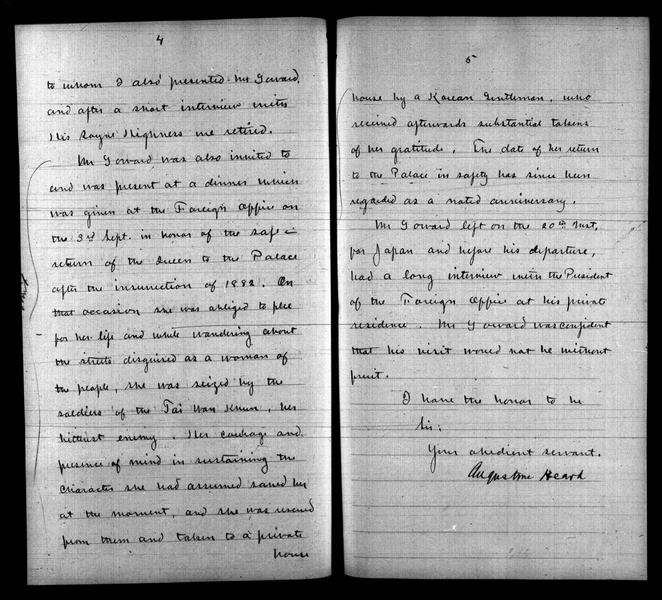 4
to whom I also presented Mr Goward,
and after a short interview with
His Royal Highness we retired.
Mr Goward was also invited to
and was present at a dinner which
was given at the Foreign Office on
the 3rd Sept. in honor of the safe
return of the Queen to the Palace
after the insurrection of 1882. On
that occasion she was obliged to flee
for her life and while wandering about
the streets disguised as a woman of
the people, she was seized by the
soldiers of the Tai Wan Khun, her
bitterest enemy. Her courage and
presence of mind in sustaining the
character she had assumed saved her
at the moment, and she was rescued
from them and taken to a private
house
5
house by a Korean gentleman, who
received afterwards substantial tokens
of her gratitude. The date of her return
to the Palace in safety has since been
regarded as a noted anniversary.
Mr Goward left on the 20th Inst.
for Japan and before his departure,
had a long interview with the President
of the Foreign Office at his private
residence. Mr Goward was confident
that his visit would not be without
fruit.
I have the honor to be
Sir:
Your obedient servant.
Augustine Heard